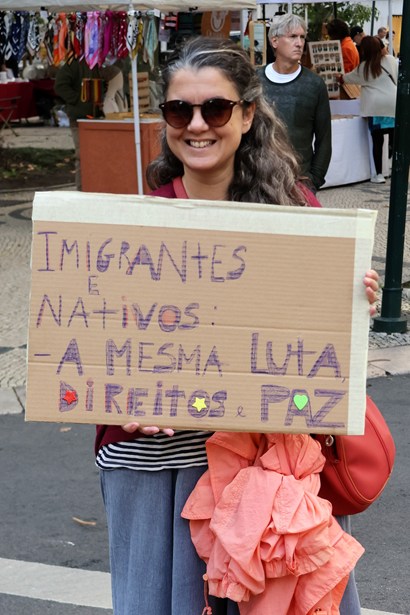 IMIGRANTES
E
NATIVOS:
-A MESMA LUTA,
DIREITOS e PAZ